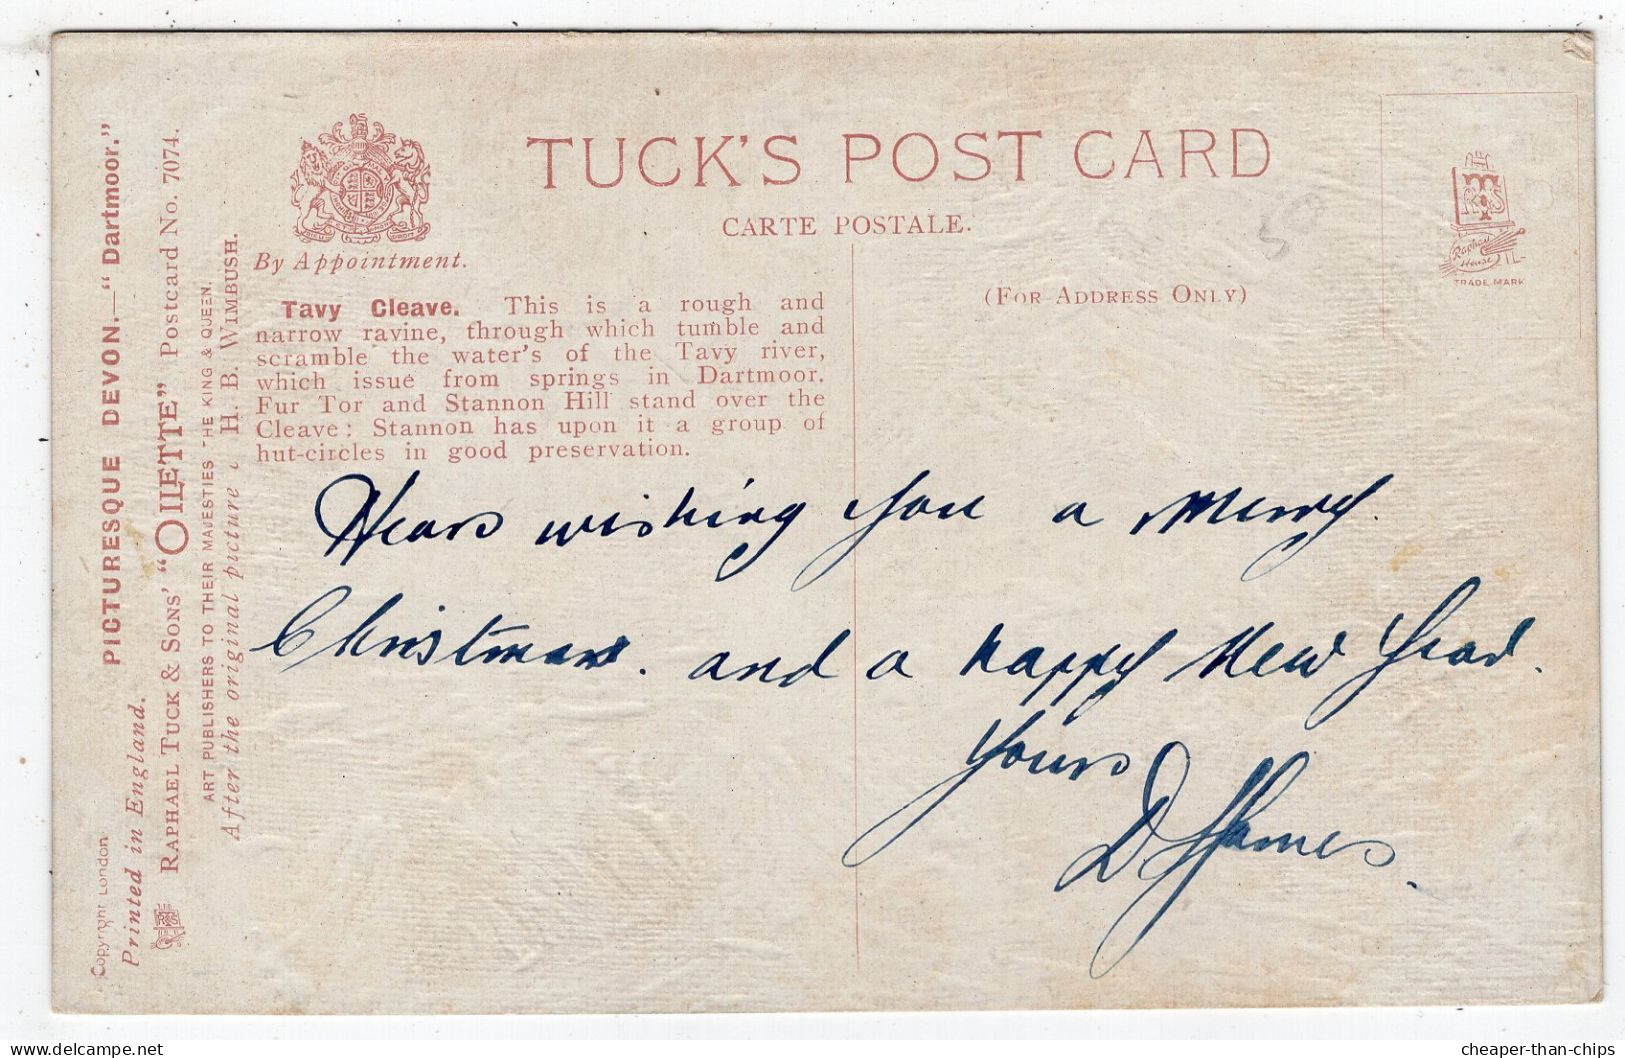 TUCK'S POST CARD
CARTE POSTALE.
By Appointment.
(FOR ADDRESS ONLY)
Raphael
House
TRADE MARK
Tavy Cleave. This is a rough and
narrow ravine, through which tumble and
scramble the water's of the Tavy river,
which issue from springs in Dartmoor.
Fur Tor and Stannon Hill stand over the
Cleave: Stannon has upon it a group of
hut-circles in good preservation.
Hears wishing you a merry
Christmas. and a happy New Year.
Yours
D James.
Copyright London
Printed in England.
PICTURESQUE DEVON.—"Dartmoor."
RAPHAEL TUCK & SONS' "OILETTE" Postcard No. 7074.
ART PUBLISHERS TO THEIR MAJESTIES THE KING & QUEEN.
After the original picture H. B. WIMBUSH.
50
delcampe.net
cheaper-than-chips